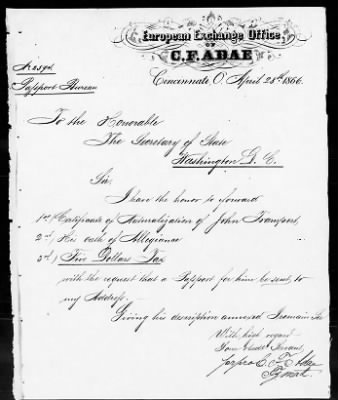 European Exchange Office
OF
C. F. ADAE
Cincinnati O. April 28th 1866.
Passport Bureau
To the Honorable
The Secretary of State
Washington D. C.
Sir
I have the honor to forward
1st) Certificate of Naturalization of John Trampert,
2nd) His oath of Allegiance
3d) Five Dollars Tax
with the request that a Passport for him be sent to
my Address.
Giving his description annexed I remain Sir
With high regard
Your Obedt Servant,
C. F. Adae